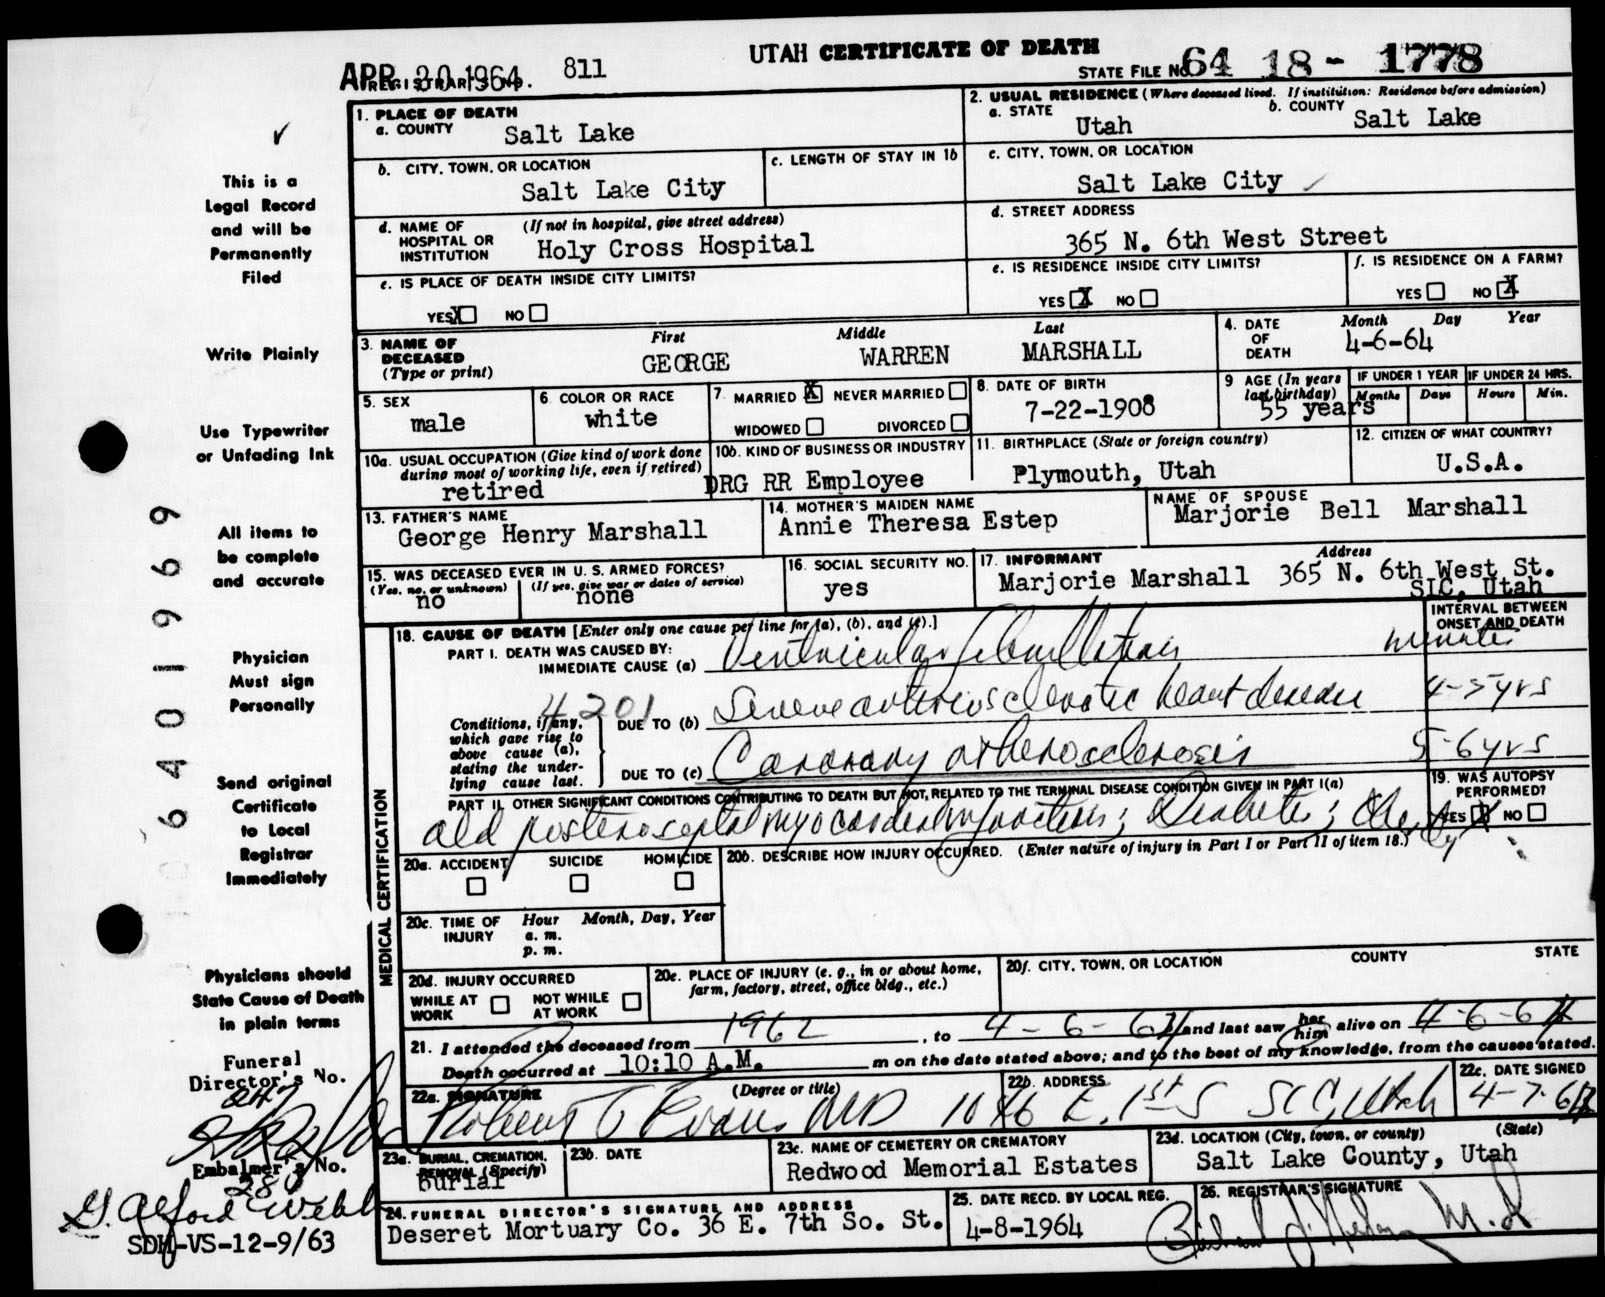 UTAH CERTIFICATE OF DEATH
APR 20 1964 REGISTRAR'S NO. 811
STATE FILE NO. 64 18 - 1778
1. PLACE OF DEATH
a. COUNTY Salt Lake
2. USUAL RESIDENCE (Where deceased lived. If institution: Residence before admission)
a. STATE Utah
b. COUNTY Salt Lake
b. CITY, TOWN, OR LOCATION Salt Lake City
c. LENGTH OF STAY IN 1b
c. CITY, TOWN, OR LOCATION Salt Lake City
d. NAME OF HOSPITAL OR INSTITUTION (If not in hospital, give street address) Holy Cross Hospital
d. STREET ADDRESS 365 N. 6th West Street
e. IS PLACE OF DEATH INSIDE CITY LIMITS? YES X NO
e. IS RESIDENCE INSIDE CITY LIMITS? YES X NO
f. IS RESIDENCE ON A FARM? YES NO X
3. NAME OF DECEASED (Type or print)
First Middle Last
GEORGE WARREN MARSHALL
4. DATE OF DEATH Month Day Year
4-6-64
5. SEX male
6. COLOR OR RACE white
7. MARRIED X NEVER MARRIED WIDOWED DIVORCED
8. DATE OF BIRTH 7-22-1908
9 AGE (In years last birthday) 55 years
IF UNDER 1 YEAR Months Days
IF UNDER 24 HRS. Hours Min.
10a. USUAL OCCUPATION (Give kind of work done during most of working life, even if retired) retired
10b. KIND OF BUSINESS OR INDUSTRY DRG RR Employee
11. BIRTHPLACE (State or foreign country) Plymouth, Utah
12. CITIZEN OF WHAT COUNTRY? U.S.A.
13. FATHER'S NAME George Henry Marshall
14. MOTHER'S MAIDEN NAME Annie Theresa Estep
NAME OF SPOUSE Marjorie Bell Marshall
15. WAS DECEASED EVER IN U. S. ARMED FORCES?
(Yes, no, or unknown) no
(If yes, give war or dates of service) none
16. SOCIAL SECURITY NO. yes
17. INFORMANT Address
Marjorie Marshall 365 N. 6th West St.
SLC, Utah
MEDICAL CERTIFICATION
18. CAUSE OF DEATH [Enter only one cause per line for (a), (b), and (c).]
INTERVAL BETWEEN ONSET AND DEATH
PART I. DEATH WAS CAUSED BY:
IMMEDIATE CAUSE (a) Ventricular fibrillation minutes
4201
Conditions, if any, which gave rise to above cause (a), stating the underlying cause last.
DUE TO (b) Severe arteriosclerotic heart disease 4-5 yrs
DUE TO (c) Coronary atherosclerosis 5-6 yrs
PART II. OTHER SIGNIFICANT CONDITIONS CONTRIBUTING TO DEATH BUT NOT RELATED TO THE TERMINAL DISEASE CONDITION GIVEN IN PART I(a)
old posteroseptal myocardial infarction; Diabetes; Obesity
19. WAS AUTOPSY PERFORMED? YES X NO
20a. ACCIDENT SUICIDE HOMICIDE
20b. DESCRIBE HOW INJURY OCCURRED. (Enter nature of injury in Part I or Part II of item 18.)
20c. TIME OF INJURY Hour Month, Day, Year
a. m.
p. m.
20d. INJURY OCCURRED
WHILE AT WORK NOT WHILE AT WORK
20e. PLACE OF INJURY (e. g., in or about home, farm, factory, street, office bldg., etc.)
20f. CITY, TOWN, OR LOCATION COUNTY STATE
21. I attended the deceased from 1962, to 4-6-64 and last saw her him alive on 4-6-64
Death occurred at 10:10 A.M. m on the date stated above; and to the best of my knowledge, from the causes stated.
22a. SIGNATURE (Degree or title) Robert T Evans MD
22b. ADDRESS 1076 E. 1st S SLC, Utah
22c. DATE SIGNED 4-7-64
23a. BURIAL, CREMATION, REMOVAL (Specify) Burial
23b. DATE
23c. NAME OF CEMETERY OR CREMATORY Redwood Memorial Estates
23d. LOCATION (City, town, or county) (State) Salt Lake County, Utah
24. FUNERAL DIRECTOR'S SIGNATURE AND ADDRESS
Deseret Mortuary Co. 36 E. 7th So. St.
25. DATE RECD. BY LOCAL REG. 4-8-1964
26. REGISTRAR'S SIGNATURE M.D.
This is a
Legal Record
and will be
Permanently
Filed
Write Plainly
Use Typewriter
or Unfading Ink
All items to
be complete
and accurate
Physician
Must sign
Personally
Send original
Certificate
to Local
Registrar
Immediately
Physicians should
State Cause of Death
in plain terms
Funeral
Director's No.
247
Embalmer's No.
G. Alford Webb
SDH-VS-12-9/63
6401969